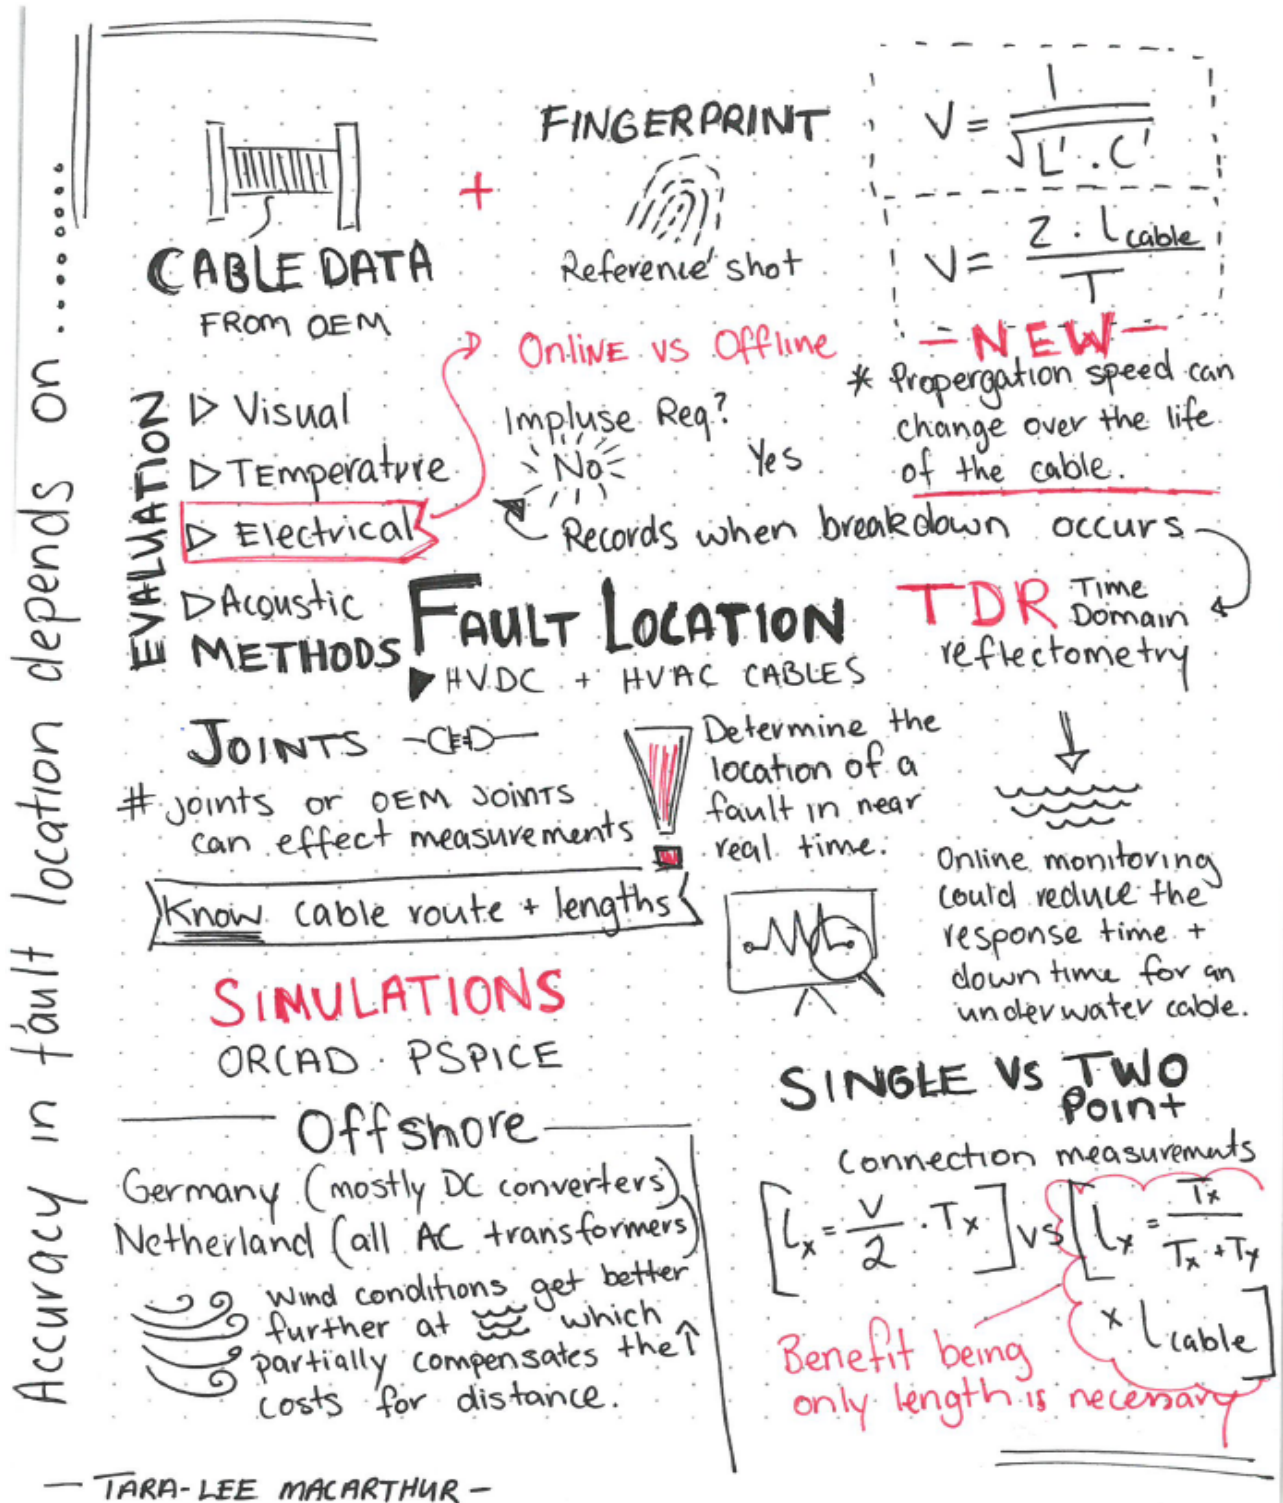 Accuracy in fault location depends on ..........
CABLE DATA
FROM OEM
+
FINGERPRINT
Reference shot
V = 1 / √L' . C'
V = 2 . l cable / T
- NEW -
* Propergation speed can
change over the life
of the cable.
EVALUATION
▷ Visual
▷ TEmperature
▷ Electrical
▷ Acoustic
METHODS
OnliNE vs Offline
Impluse Req?
No
Yes
Records when breakdown occurs
FAULT LOCATION
▶ HVDC + HVAC CABLES
TDR Time
Domain
reflectometry
JOINTS
# joints or OEM JOINTS
can effect measurements
Know cable route + lengths
Determine the
location of a
fault in near
real time.
Online monitoring
could reduce the
response time +
down time for an
underwater cable.
SIMULATIONS
ORCAD . PSPICE
Offshore
Germany (mostly DC converters)
Netherland (all AC transformers)
Wind conditions get better
further at which
partially compensates the ↑
costs for distance.
SINGLE VS TWO
Point
Connection measurements
[lx = V / 2 . Tx] vs [lx = Tx / Tx + Ty
x l cable]
Benefit being
only length is necessary
- TARA-LEE MACARTHUR -